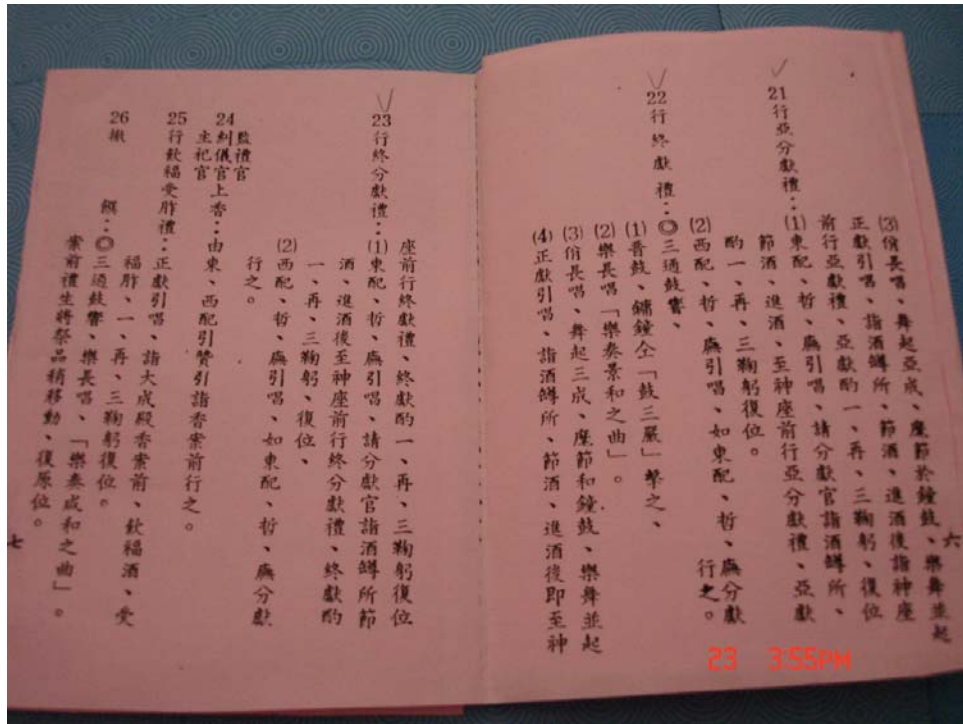 (3)佾長唱、舞起亞成、麾節於鐘鼓、樂舞並起
正獻引唱、詣酒罇所、節酒、進酒後詣神座
前行亞獻禮、亞獻酌一、再、三鞠躬、復位
21行亞分獻禮：(1)東配、哲、廡引唱、請分獻官詣酒罇所、
節酒、進酒、至神座前行亞分獻禮、亞獻
酌一、再、三鞠躬復位。
(2)西配、哲、廡引唱、如東配、哲、廡分獻
行之。
22行終獻禮：◎三通鼓響、
(1)晋鼓、鏞鐘仝「鼓三嚴」擊之、
(2)樂長唱「樂奏景和之曲」。
(3)佾長唱、舞起三成、麾節和鐘鼓、樂舞並起
(4)正獻引唱、詣酒罇所、節酒、進酒後即至神
六
座前行終獻禮、終獻酌一、再、三鞠躬復位
23行終分獻禮：(1)東配、哲、廡引唱、請分獻官詣酒罇所節
酒、進酒後至神座前行終分獻禮、終獻酌
一、再、三鞠躬、復位、
(2)西配、哲、廡引唱、如東配、哲、廡分獻
行之。
監禮官
24糾儀官上香：由東、西配引贊引詣香案前行之。
主祀官
25行飲福受胙禮：正獻引唱、詣大成殿香案前、飲福酒、受
福胙、一、再、三鞠躬復位。
26撤饌：◎三通鼓響、樂長唱、「樂奏咸和之曲」。
案前禮生將祭品稍移動、復原位。
七
23 3:55PM